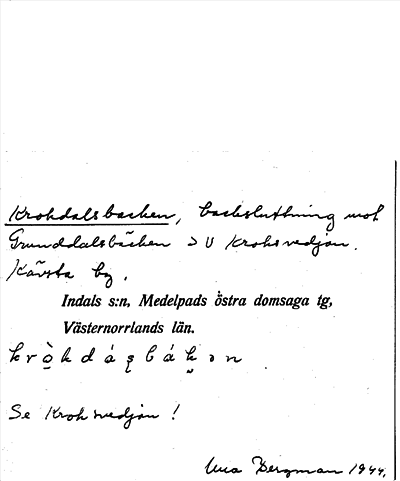 Krohdalsbacken, backsluttning mot
Grunddalsbäcken > V Krohsvedjan.
Kävsta by.
Indals s:n, Medelpads östra domsaga tg,
Västernorrlands län.
k r ò̱ k d á ʂ b á k ə n
Se Krohsvedjan !
Una Bergman 1944.